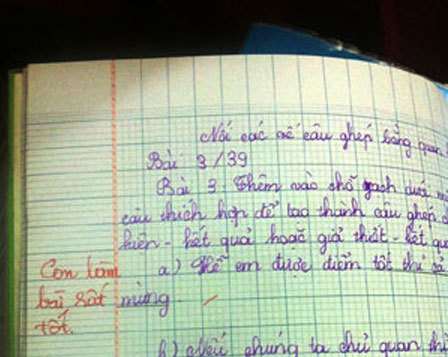 Nối các vế câu ghép bằng quan
Bài 3/39
Bài 3. Thêm vào chỗ gạch dưới
câu thích hợp để tạo thành câu ghép
kiện - kết quả hoặc giả thiết - kết quả
a) Hễ em được điểm tốt thì cả
Con làm
bài rất
tốt.
mừng.
b) Nếu chúng ta chủ quan thì